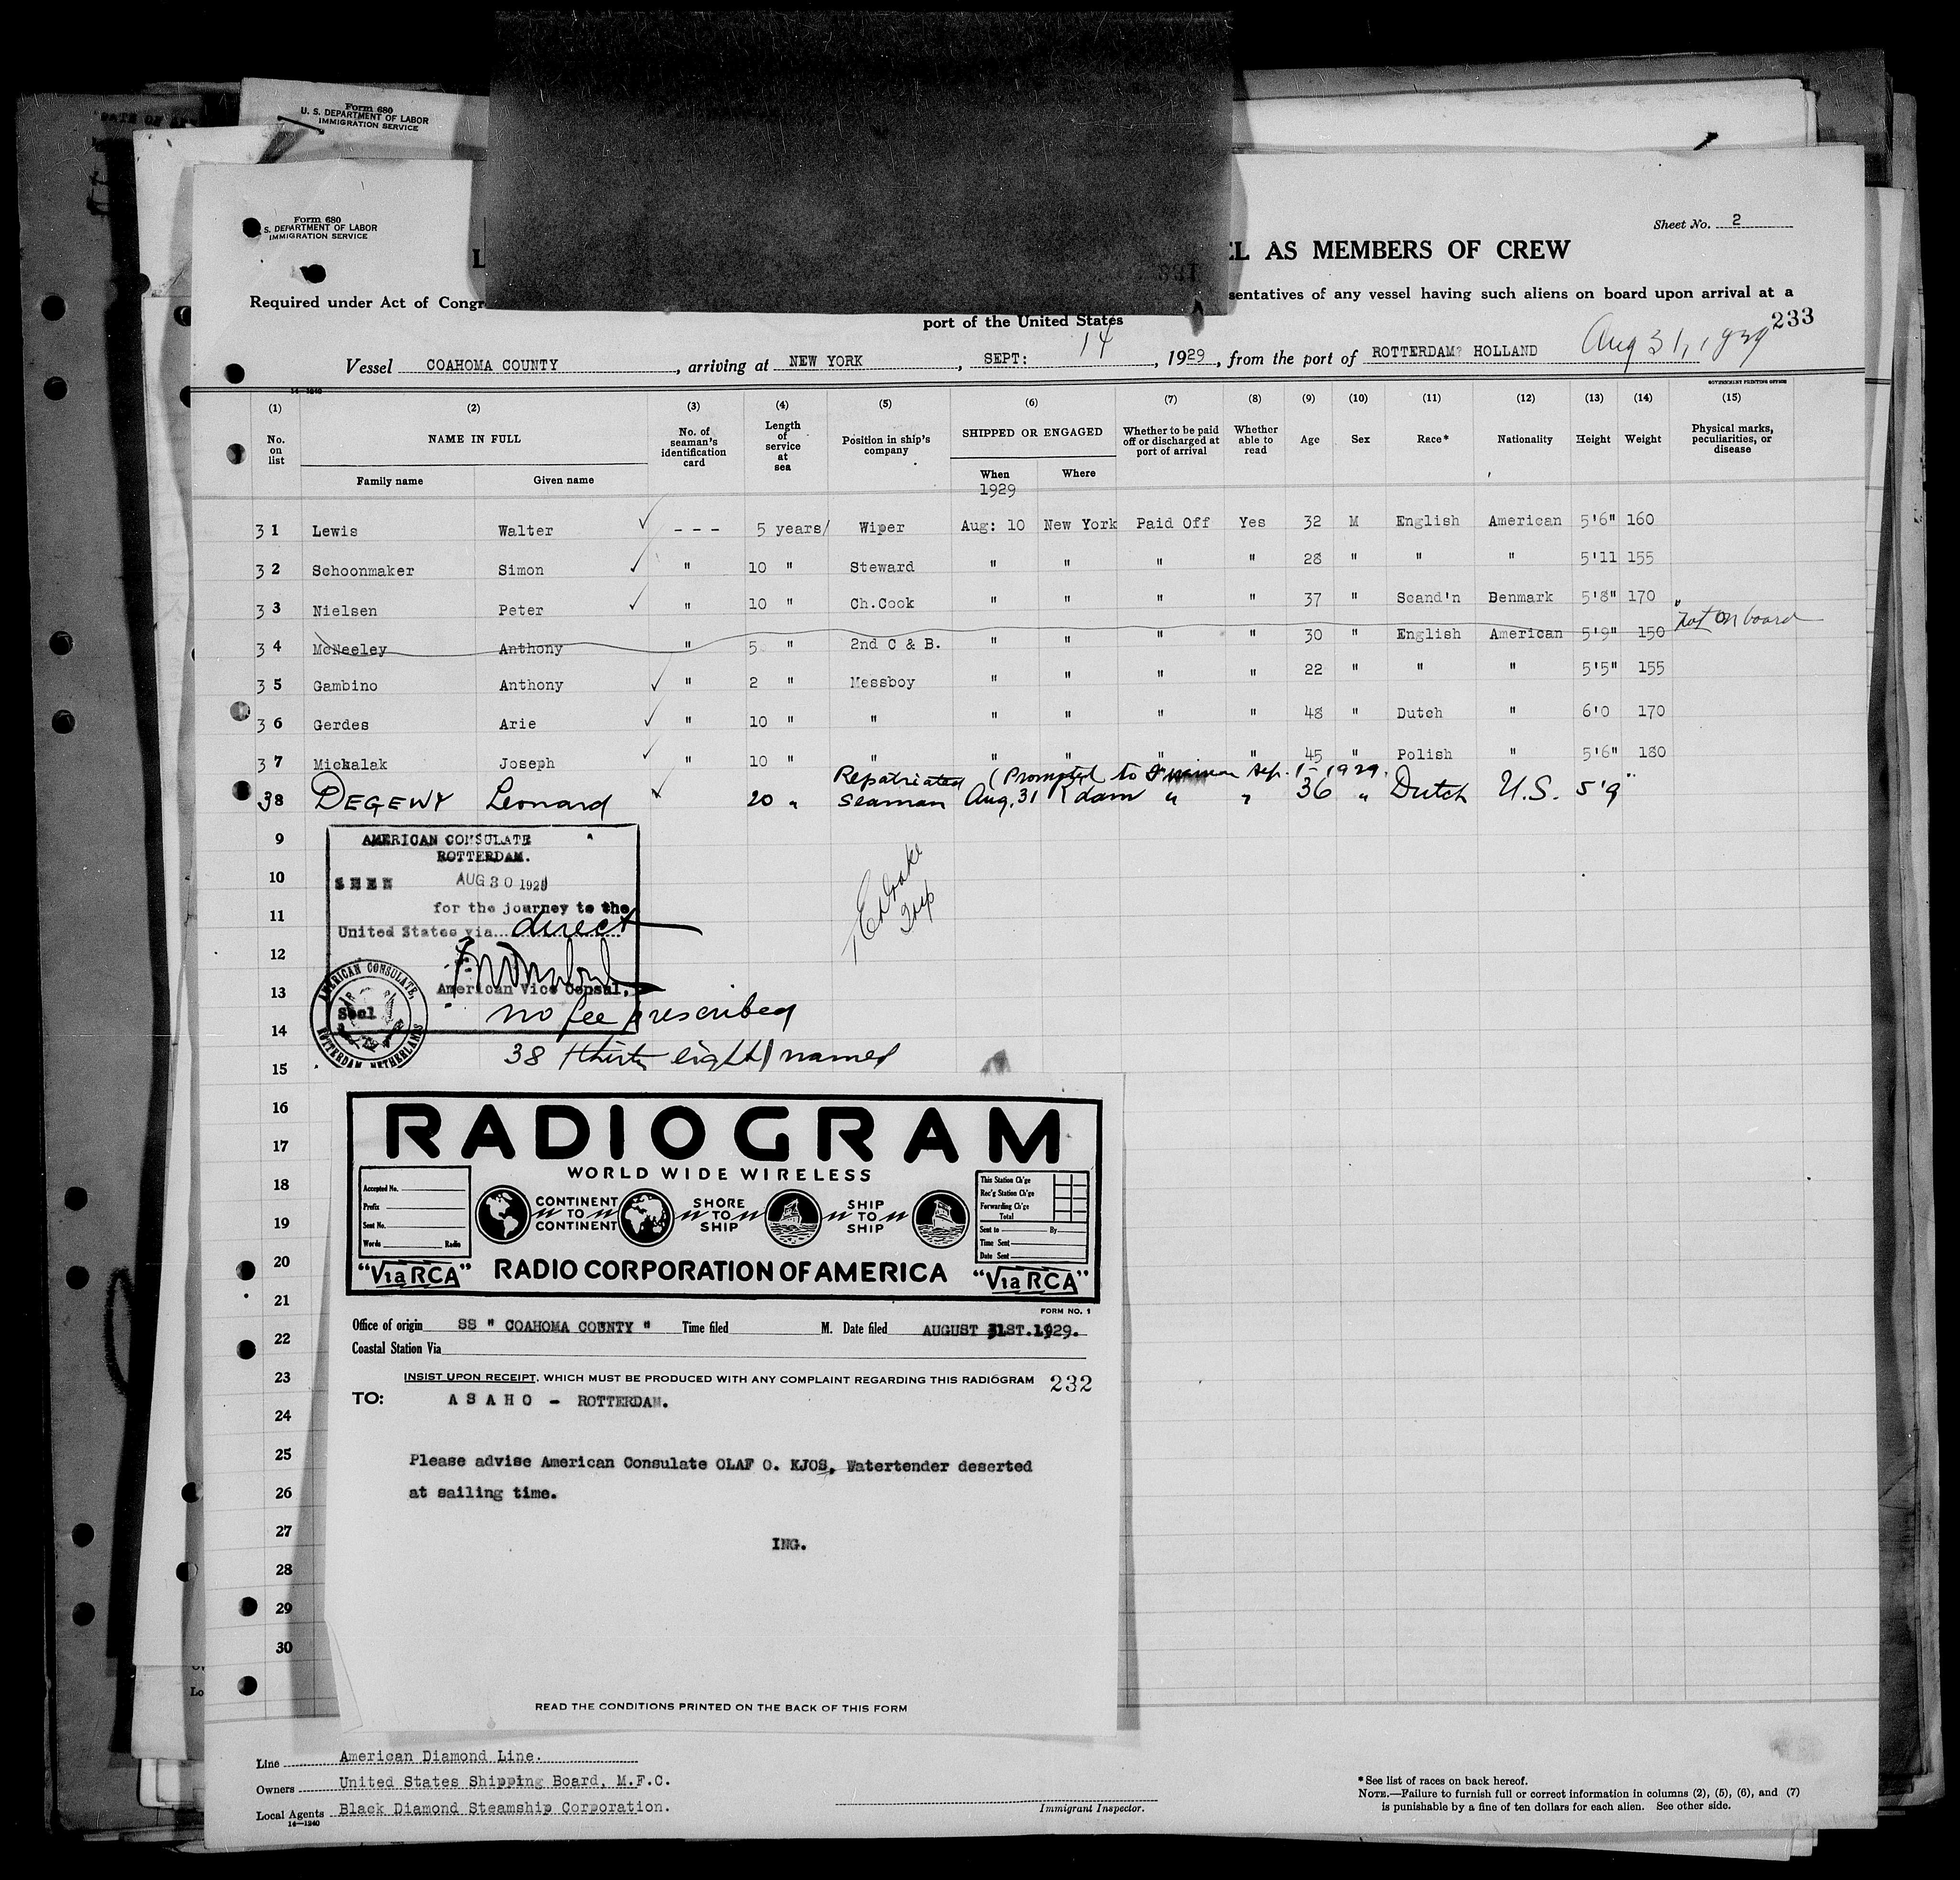 Form 680
U. S. DEPARTMENT OF LABOR
IMMIGRATION SERVICE
Form 680
S. DEPARTMENT OF LABOR
IMMIGRATION SERVICE
Sheet No. 2
L
EL AS MEMBERS OF CREW
Required under Act of Congr
sentatives of any vessel having such aliens on board upon arrival at a
port of the United States
233
Vessel COAHOMA COUNTY, arriving at NEW YORK, SEPT: 14, 1929, from the port of ROTTERDAM? HOLLAND Aug 31, 1929
14—1240
GOVERNMENT PRINTING OFFICE
(1) (2) (3) (4) (5) (6) (7) (8) (9) (10) (11) (12) (13) (14) (15)
No. on list NAME IN FULL No. of seaman's identification card Length of service at sea Position in ship's company SHIPPED OR ENGAGED Whether to be paid off or discharged at port of arrival Whether able to read Age Sex Race* Nationality Height Weight Physical marks, peculiarities, or disease
Family name Given name When Where
1929
31 Lewis Walter ✓ --- 5 years/ Wiper Aug: 10 New York Paid Off Yes 32 M English American 5'6" 160
32 Schoonmaker Simon ✓ " 10 " Steward " " " " 28 " " " 5'11 155
33 Nielsen Peter ✓ " 10 " Ch.Cook " " " " 37 " Scand'n Benmark 5'8" 170
34 McNeeley Anthony " 5 " 2nd C & B. " " " " 30 " English American 5'9" 150 not on board
35 Gambino Anthony ✓ " 2 " Messboy " " " " 22 " " " 5'5" 155
36 Gerdes Arie ✓ " 10 " " " " " " 48 " Dutch " 6'0 170
37 Mickalak Joseph ✓ " 10 " " " " " " 45 " Polish " 5'6" 180
Repatriated (Promoted to Sep. 1- 1929.
38 DEGEWY Leonard ✓ 20 " Seaman Aug. 31 R'dam " " 36 " Dutch U.S. 5'9"
9
AMERICAN CONSULATE
ROTTERDAM.
10
SEEN AUG 30 1929
for the journey to the
11
United States via direct
12
American Vice Consul.
13
AMERICAN CONSULATE,
Seal
ROTTERDAM NETHERLANDS
no fee prescribed
14
38 (thirty eight) named
15
16
17
18
19
20
21
22
23
24
25
26
27
28
29
30
RADIOGRAM
WORLD WIDE WIRELESS
Accepted No.
Prefix
Sent No.
Words Radio
CONTINENT TO CONTINENT
SHORE TO SHIP
SHIP TO SHIP
This Station Ch'ge
Rec'g Station Ch'ge
Forwarding Ch'ge
Total
Sent to By
Time Sent
Date Sent
"Via RCA" RADIO CORPORATION OF AMERICA "Via RCA"
FORM NO. 1
Office of origin SS " COAHOMA COUNTY " Time filed M. Date filed AUGUST 31ST.1929.
Coastal Station Via
INSIST UPON RECEIPT, WHICH MUST BE PRODUCED WITH ANY COMPLAINT REGARDING THIS RADIOGRAM 232
TO: A S A H O - ROTTERDAM.
Please advise American Consulate OLAF O. KJOS, Watertender deserted
at sailing time.
ING.
READ THE CONDITIONS PRINTED ON THE BACK OF THIS FORM
Line American Diamond Line.
Owners United States Shipping Board, M.F.C.
Local Agents Black Diamond Steamship Corporation.
14—1240
Immigrant Inspector.
*See list of races on back hereof.
NOTE.—Failure to furnish full or correct information in columns (2), (5), (6), and (7)
is punishable by a fine of ten dollars for each alien. See other side.